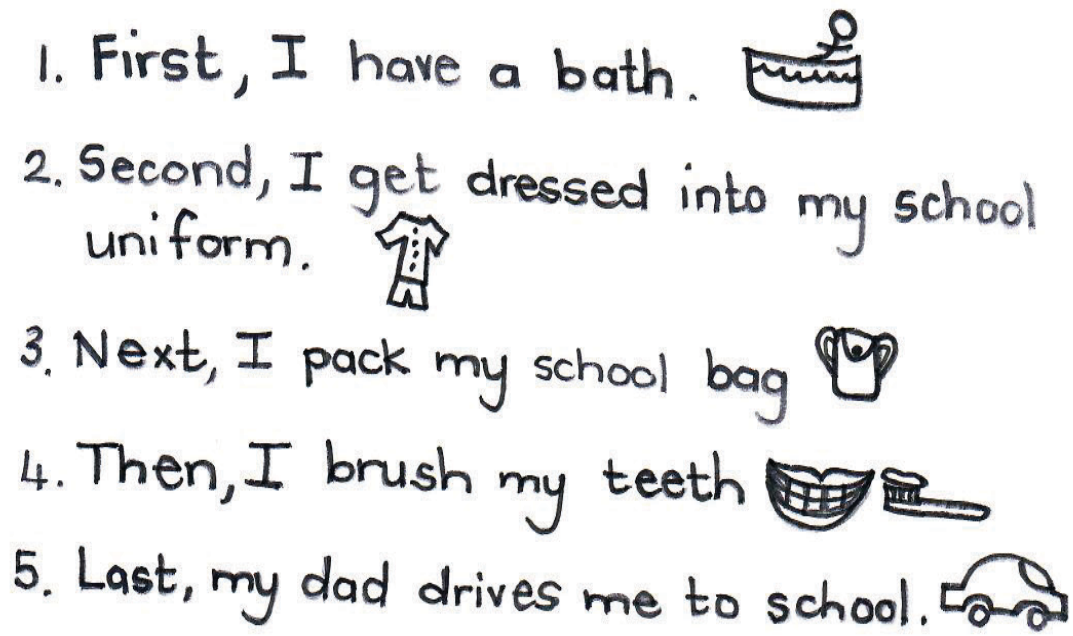 1. First, I have a bath.
2. Second, I get dressed into my school
uniform.
3. Next, I pack my school bag
4. Then, I brush my teeth
5. Last, my dad drives me to school.